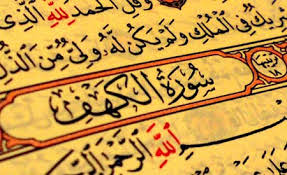 وَقُلِ الْحَمْدُ لِلَّهِ الَّذِي
شَرِيكٌ فِي الْمُلْكِ وَلَمْ يَكُنْ لَهُ وَلِيٌّ مِّنَ الذُّلِّ
سُورَةُ الْكَهْفِ ١٨
اللَّهِ الرَّحْمَٰنِ